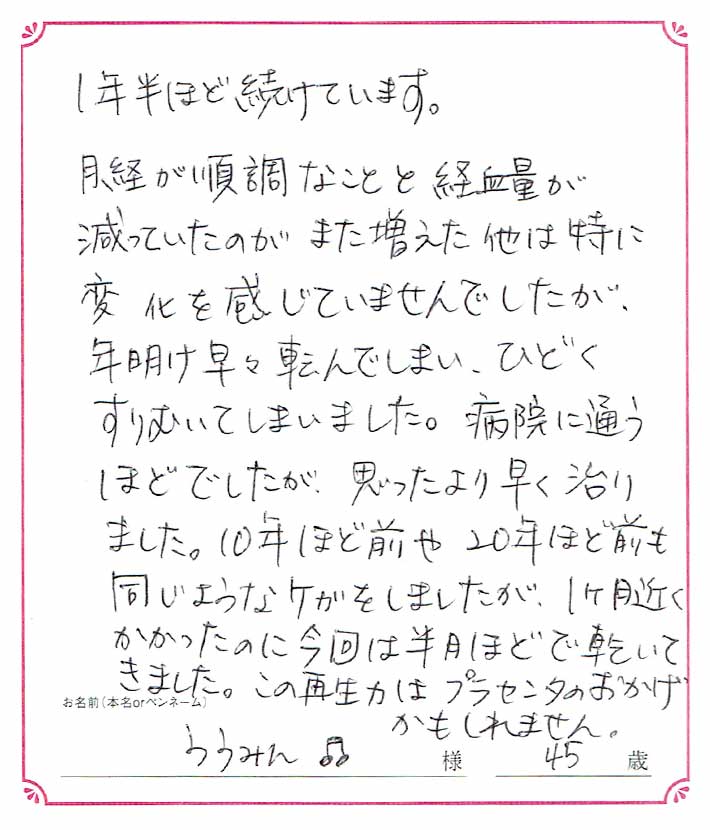 1年半ほど続けています。
月経が順調なことと経血量が
減っていたのがまた増えた他は特に
変化を感じていませんでしたが、
年明け早々転んでしまい、ひどく
すりむいてしまいました。病院に通う
ほどでしたが、思ったより早く治り
ました。10年ほど前や20年ほど前も
同じようなケガをしましたが、1ヶ月近く
かかったのに今回は半月ほどで乾いて
きました。この再生力はプラセンタのおかげ
かもしれません。
お名前(本名orペンネーム)
ううみん♫ 様 45 歳